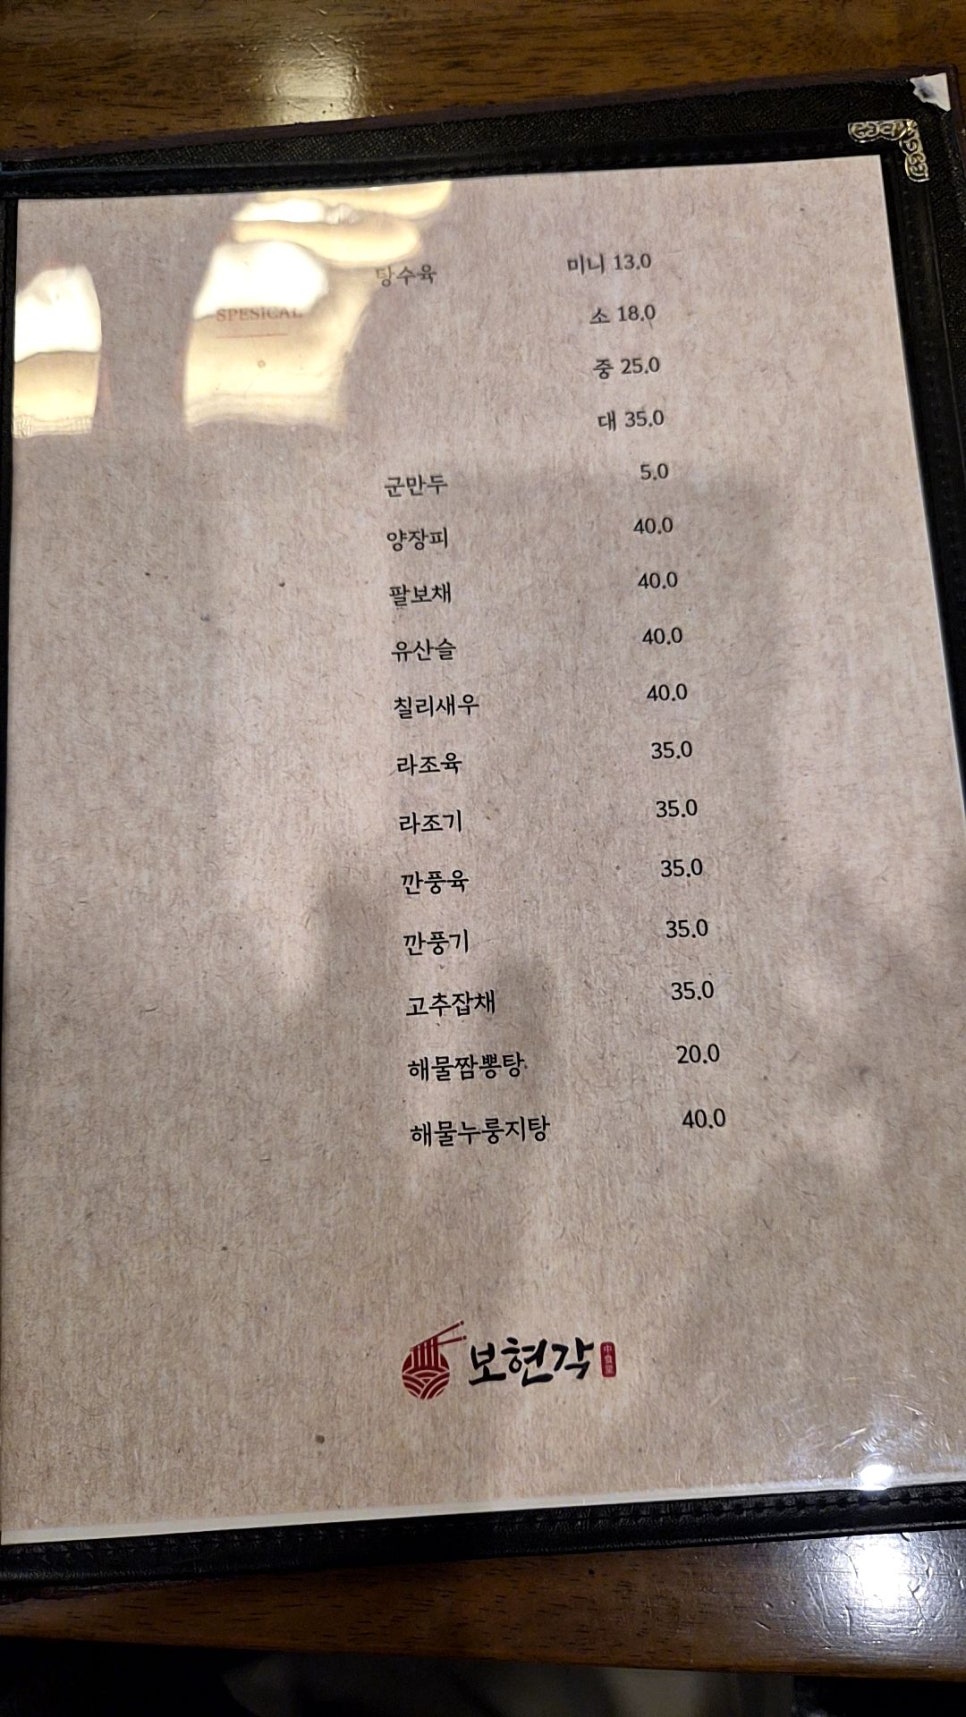 탕수육 미니 13.0
SPESICAL
소 18.0
중 25.0
대 35.0
군만두 5.0
양장피 40.0
팔보채 40.0
유산슬 40.0
칠리새우 40.0
라조육 35.0
라조기 35.0
깐풍육 35.0
깐풍기 35.0
고추잡채 35.0
해물짬뽕탕 20.0
해물누룽지탕 40.0
보현각